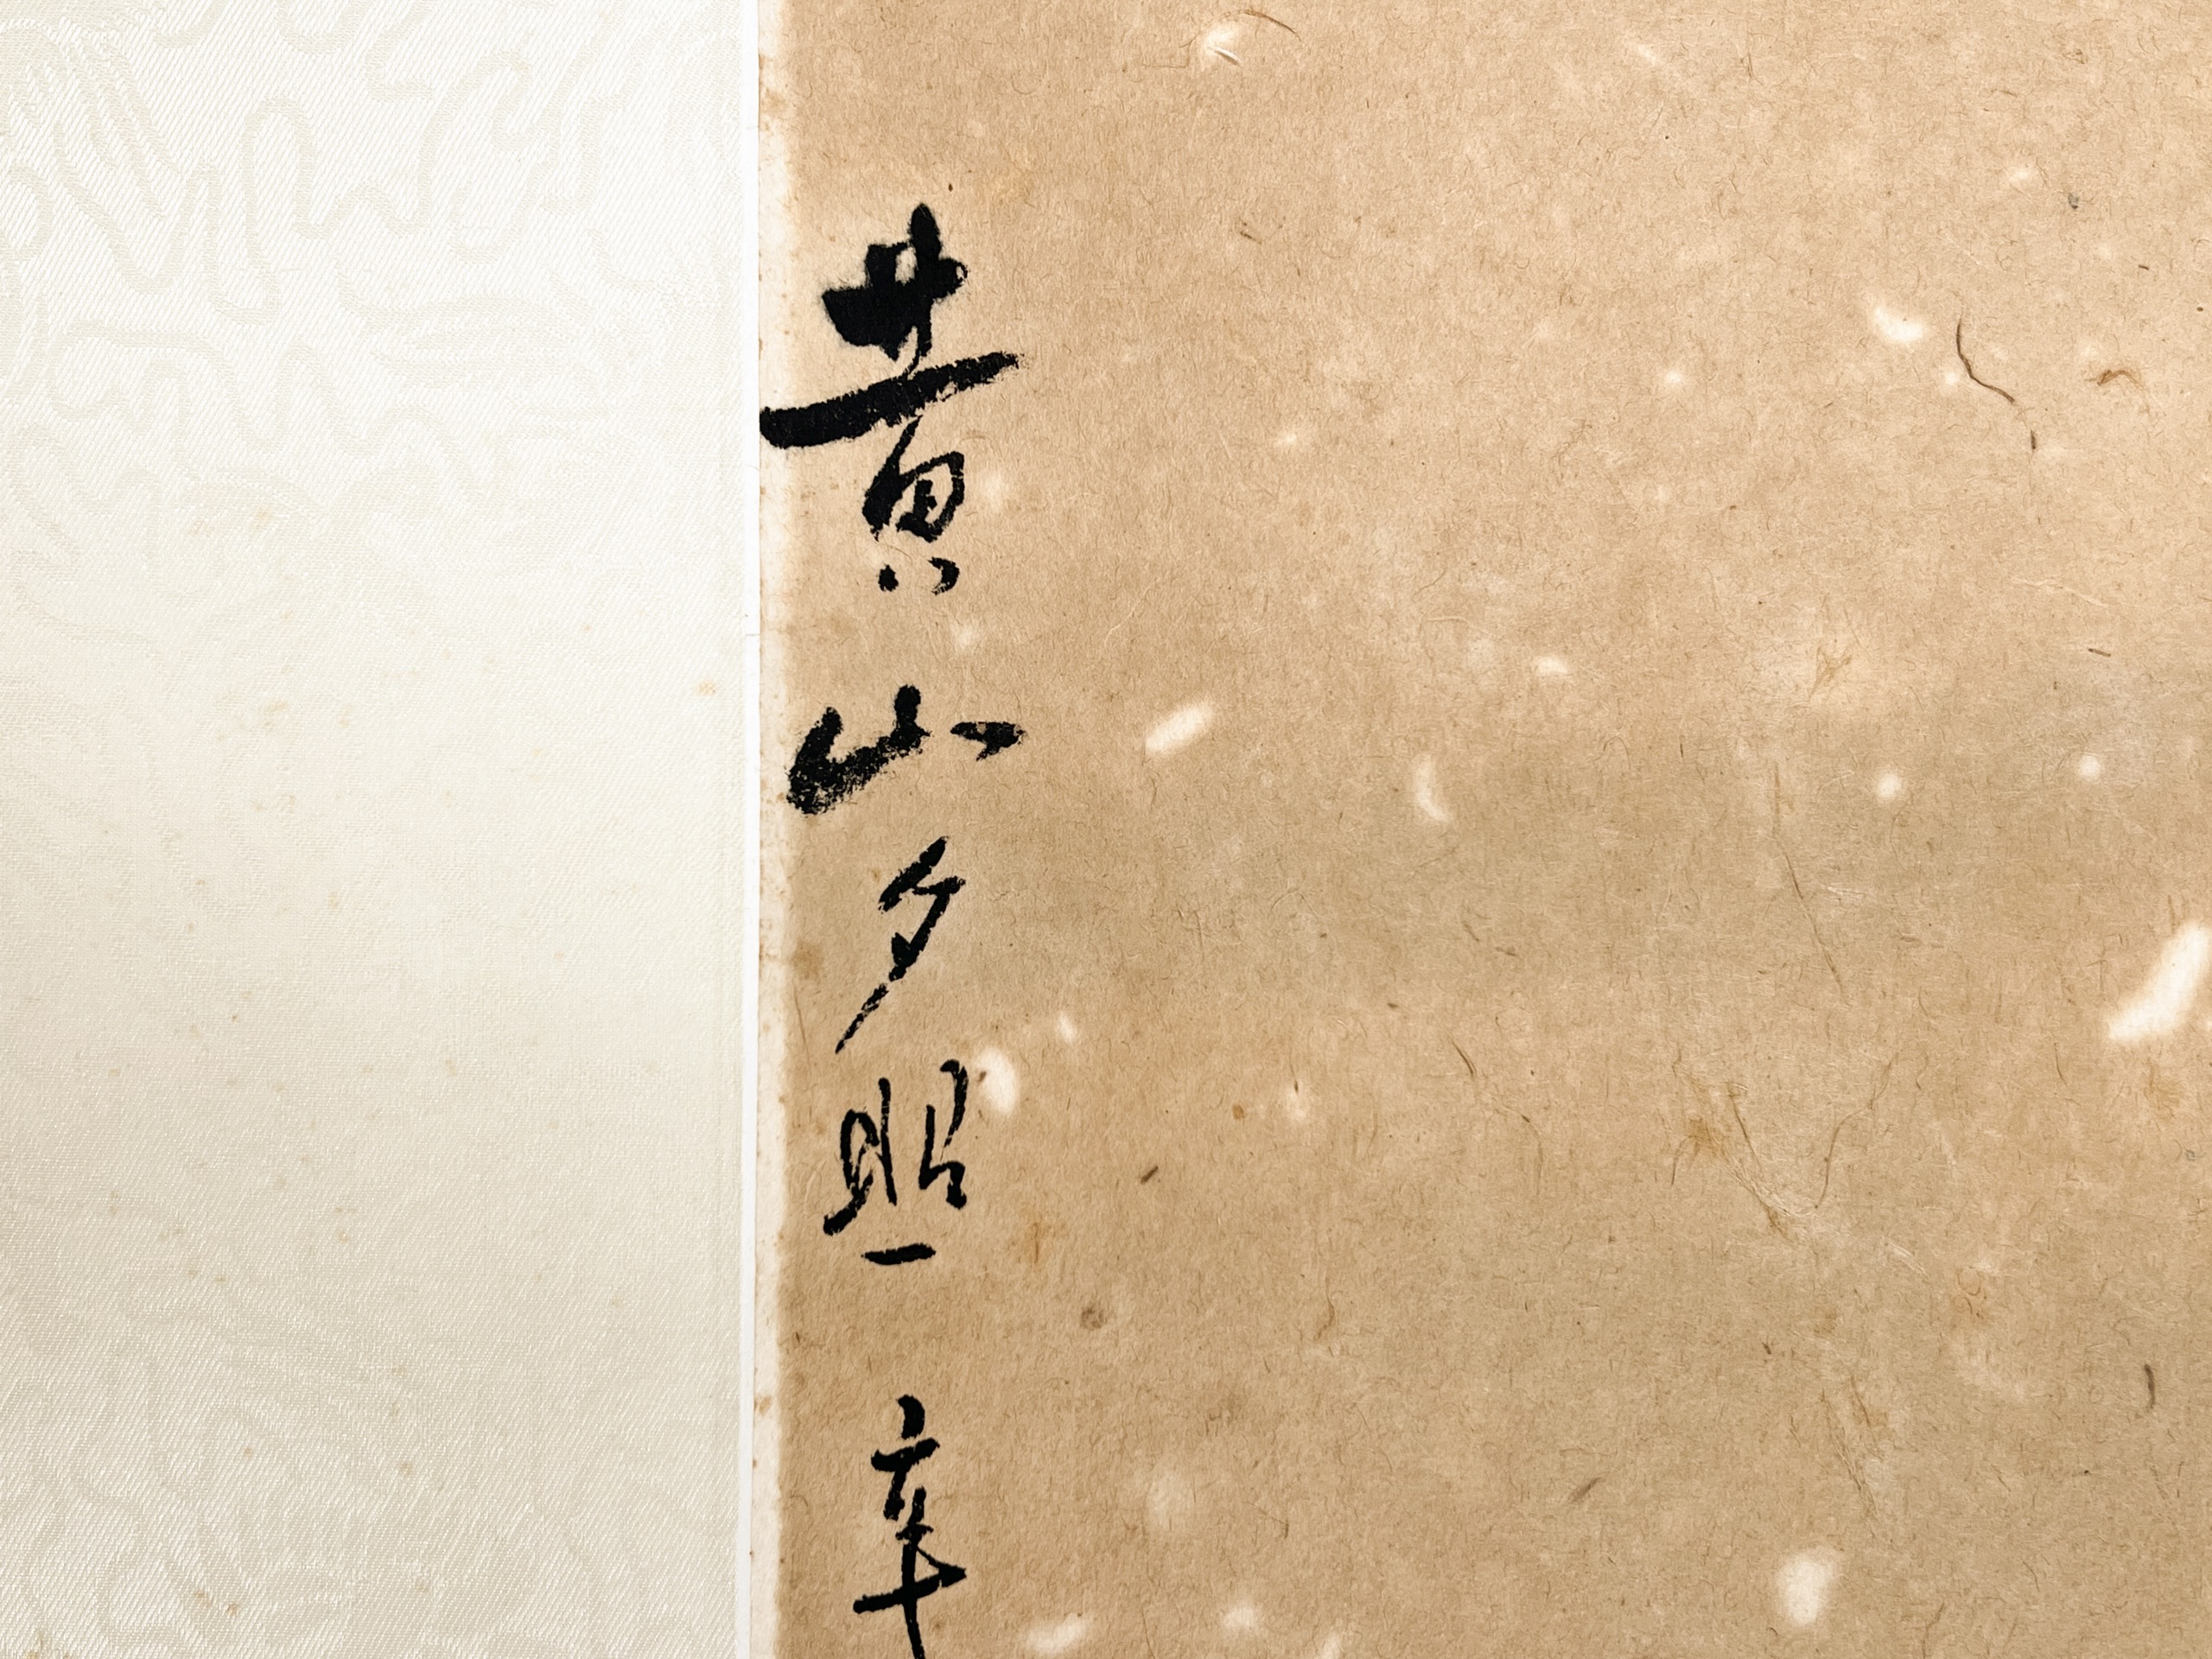 黄山夕照 辛